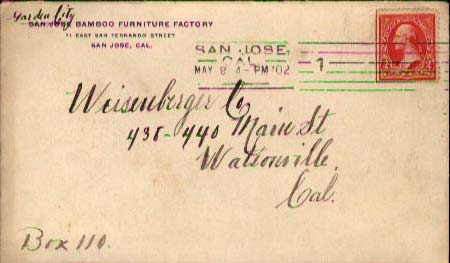 Garden City
SAN JOSE BAMBOO FURNITURE FACTORY
71 EAST SAN FERNANDO STREET
SAN JOSE, CAL.
SAN JOSE,
CAL.
MAY 8 4-PM '02
1
Weisenberger Co
438-440 Main St
Watsonville
Cal.
Box 110.